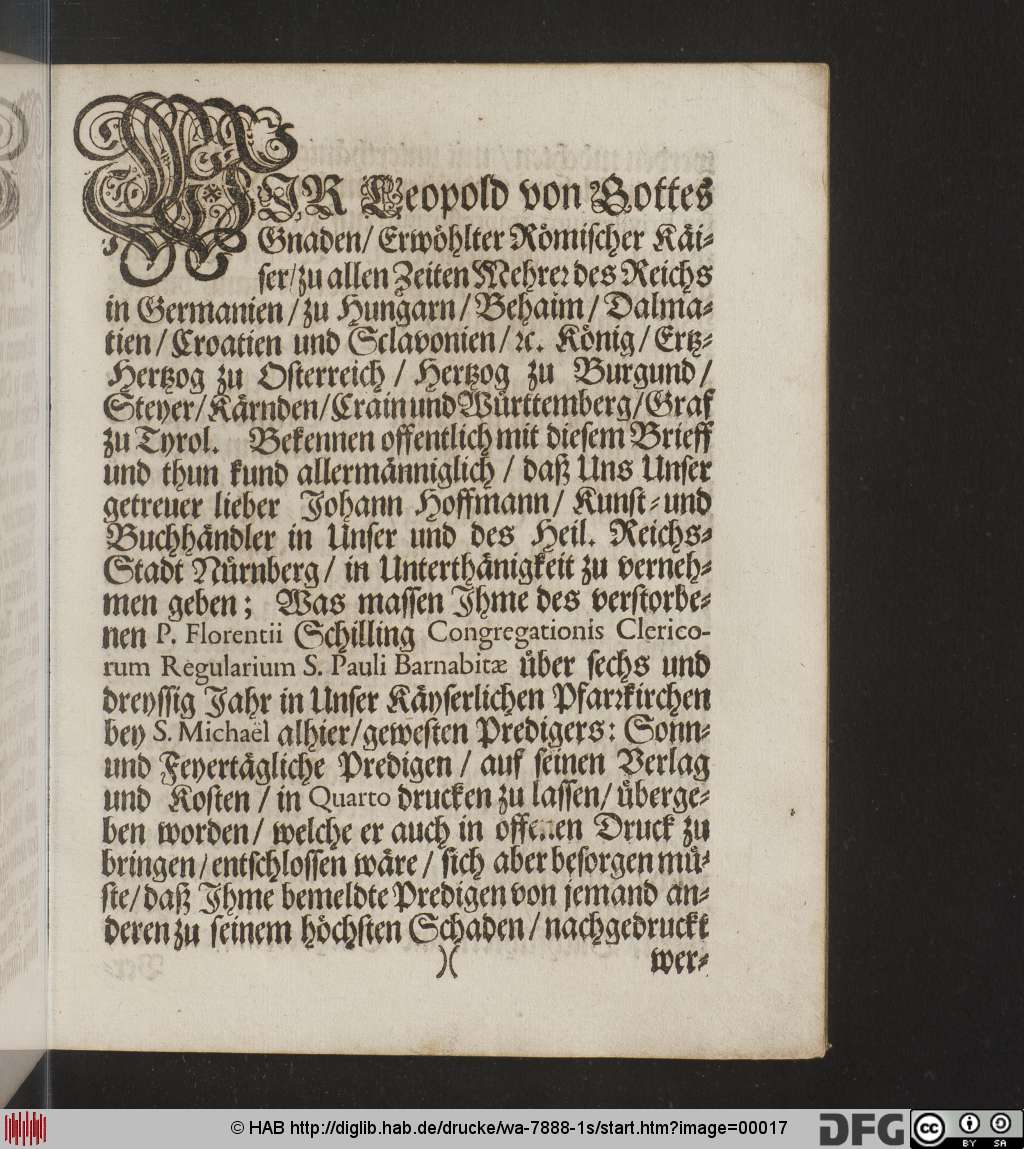 WIR Leopold von Gottes
Gnaden/ Erwöhlter Römischer Käi-
ser/zu allen Zeiten Mehrer des Reichs
in Germanien/zu Hungarn/Behaim/Dalma-
tien/Croatien und Sclavonien/ꝛc. König/Ertz-
Hertzog zu Osterreich/ Hertzog zu Burgund/
Steyer/Kärnden/Crain und Württemberg/Graf
zu Tyrol. Bekennen offentlich mit diesem Brieff
und thun kund allermänniglich/ daß Uns Unser
getreuer lieber Johann Hoffmann/ Kunst-und
Buchhändler in Unser und des Heil. Reichs-
Stadt Nürnberg/ in Unterthänigkeit zu verneh-
men geben; Was massen Ihme des verstorbe-
nen P. Florentii Schilling Congregationis Clerico-
rum Regularium S. Pauli Barnabitæ über sechs und
dreyssig Jahr in Unser Käyserlichen Pfarrkirchen
bey S. Michaël alhier/gewesten Predigers: Sonn-
und Feyertägliche Predigen/ auf seinen Verlag
und Kosten/in Quarto drucken zu lassen/überge-
ben worden/ welche er auch in offenen Druck zu
bringen/entschlossen wäre/ sich aber besorgen mü-
ste/daß Ihme bemeldte Predigen von jemand an-
deren zu seinem höchsten Schaden/nachgedruckt
)( wer-
© HAB http://diglib.hab.de/drucke/wa-7888-1s/start.htm?image=00017
DFG
cc BY SA